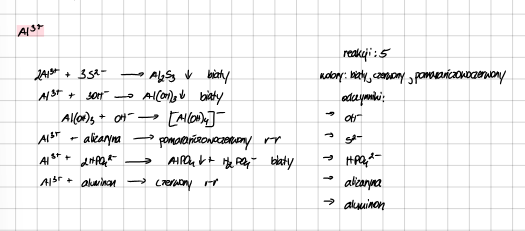 Al³⁺
2Al³⁺ + 3S²⁻ → Al₂S₃ ↓ biały
Al³⁺ + 3OH⁻ → Al(OH)₃ ↓ biały
Al(OH)₃ + OH⁻ → [Al(OH)₄]⁻
Al³⁺ + alicaryna → pomarańczowoczerwony r-r
Al³⁺ + 2HPO₄²⁻ → AlPO₄ ↓ + H₂PO₄⁻ biały
Al³⁺ + aluminon → czerwony r-r
reakcji : 5
kolory: biały, czerwony, pomarańczowoczerwony
odczynniki:
→ OH⁻
→ S²⁻
→ HPO₄²⁻
→ alicaryna
→ aluminon